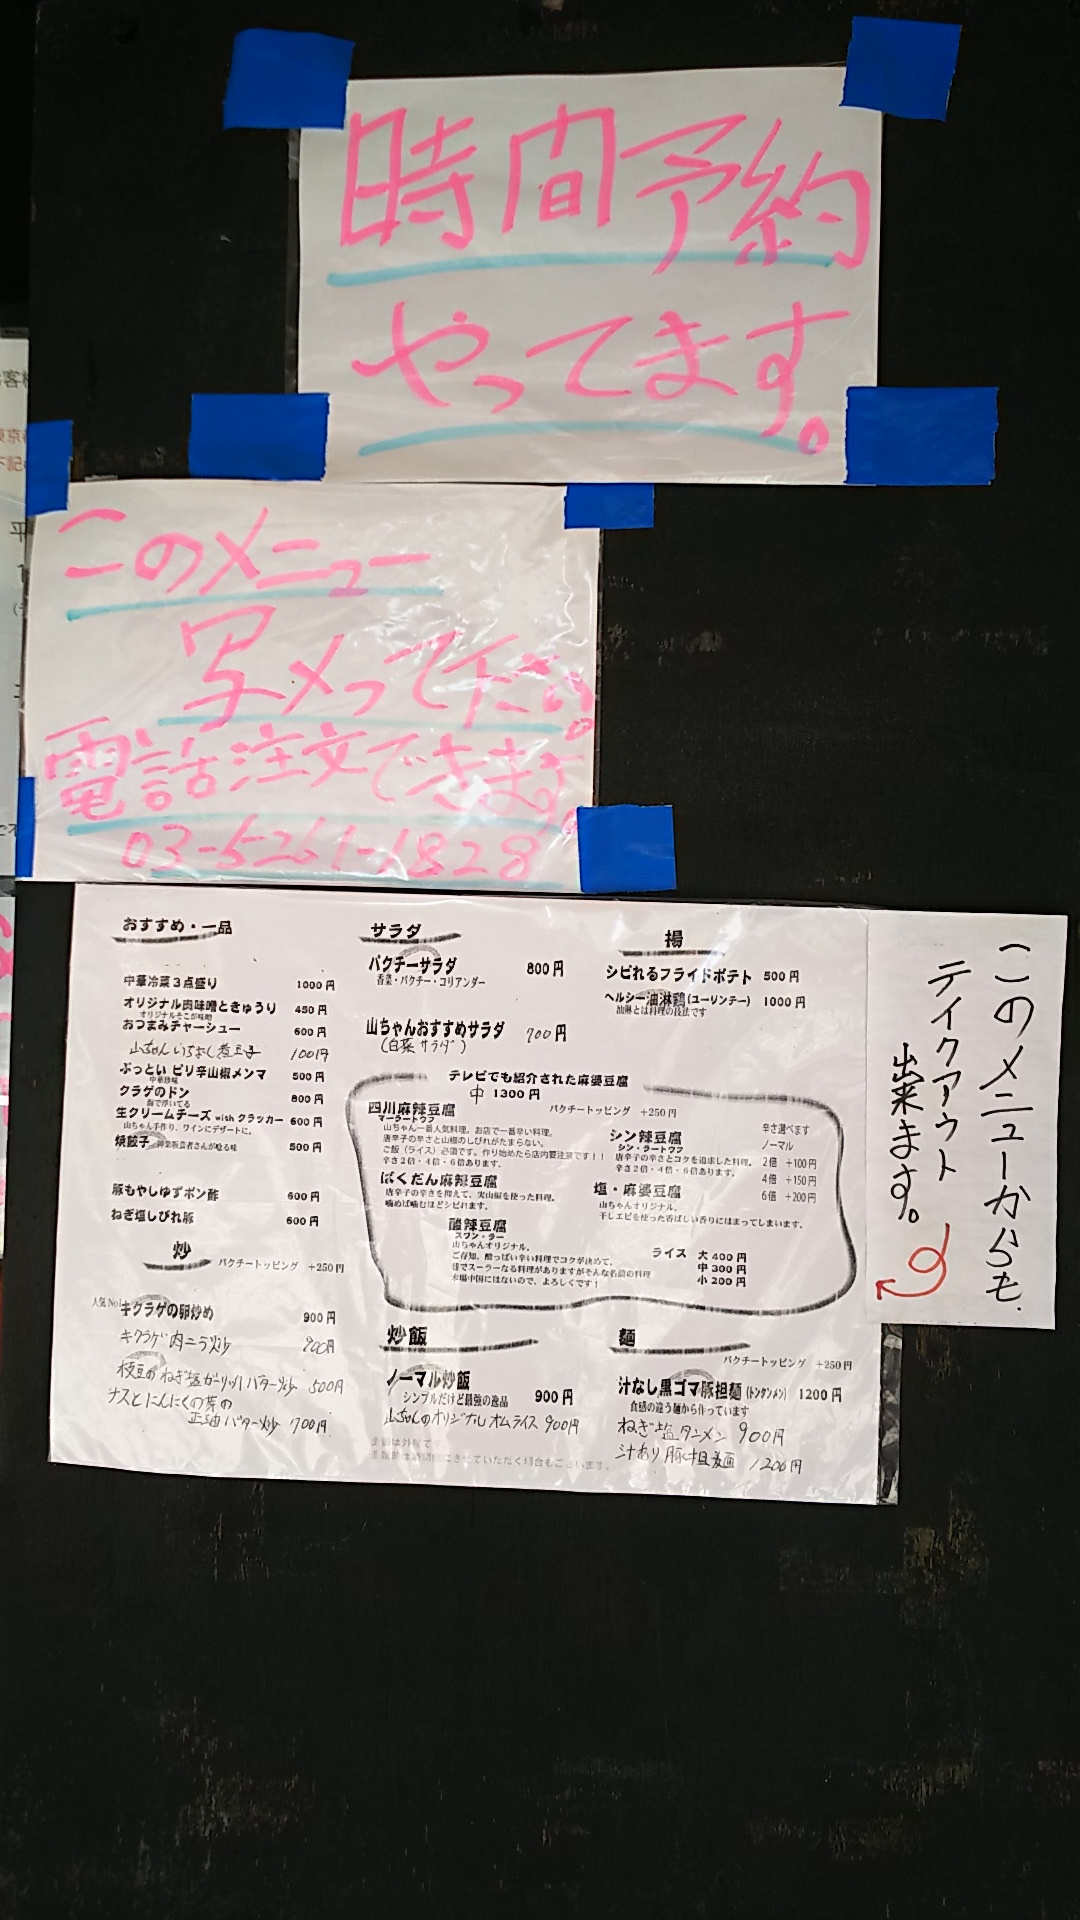 時間予約
やってます。
このメニュー
写メって下さい。
電話注文できます。
03-5261-1828
このメニューからも
テイクアウト
出来ます。
おすすめ・一品
中華冷菜3点盛り 1000円
オリジナル肉味噌ときゅうり 450円
オリジナルそこが味噌
おつまみチャーシュー 600円
山ちゃんいちおし煮玉子 100円
ぶっとい ピリ辛山椒メンマ 500円
中華珍味
クラゲのドン 800円
海で浮いてる
生クリームチーズ with クラッカー 600円
山ちゃん手作り、ワインにデザートに。
焼餃子 神楽坂芸者さんが唸る味 500円
豚もやしゆずポン酢 600円
ねぎ塩しびれ豚 600円
炒
パクチートッピング +250円
人気No1 キクラゲの卵炒め 900円
キクラゲ肉ニラ炒 900円
枝豆のねぎ塩ガーリックバター炒 500円
ナスとにんにくの芽の
正油バター炒 700円
サラダ
パクチーサラダ 800円
香菜・パクチー・コリアンダー
山ちゃんおすすめサラダ 700円
(白菜サラダ)
揚
シビれるフライドポテト 500円
ヘルシー油淋鶏(ユーリンチー) 1000円
油淋とは料理の技法です
テレビでも紹介された麻婆豆腐
中 1300円
パクチートッピング +250円
四川麻辣豆腐
マーラートウフ
山ちゃん一番人気料理。お店で一番辛い料理。
唐辛子の辛さと山椒のしびれがたまらない。
ご飯(ライス)必須です。作り始めたら店内要注意です!!
辛さ2倍・4倍・6倍あります。
ばくだん麻辣豆腐
唐辛子の辛さを抑えて、実山椒を使った料理。
噛めば噛むほどシビれます。
酸辣豆腐
スワン・ラー
山ちゃんオリジナル。
ご存知、酸っぱい辛い料理でコクが決めて。
巷でスーラーなる料理がありますがそんな名前の料理
本場中国にはないので、よろしくです!
シン辣豆腐
シン・ラートウフ
唐辛子の辛さとコクを追求した料理。
辛さ2倍・4倍・6倍あります。
塩・麻婆豆腐
山ちゃんオリジナル。
干しエビを使った香ばしい香りにはまってしまいます。
辛さ選べます
ノーマル
2倍 +100円
4倍 +150円
6倍 +200円
ライス 大 400円
中 300円
小 200円
炒飯
ノーマル炒飯 900円
シンプルだけど最強の逸品
山ちゃんのオリジナルオムライス 900円
金額は外税です。
麺
パクチートッピング +250円
汁なし黒ゴマ豚担麺(トンタンメン) 1200円
食感の違う麺から作っています
ねぎ塩タンメン 900円
汁あり豚担麺 1200円